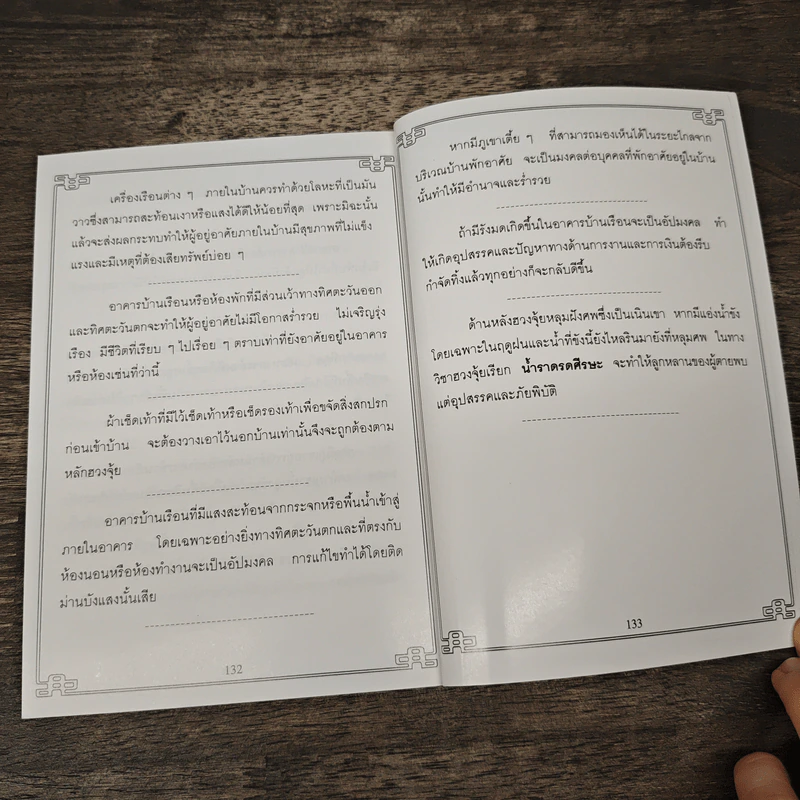 เครื่องเรือนต่าง ๆ ภายในบ้านควรทำด้วยโลหะที่เป็นมัน
วาวซึ่งสามารถสะท้อนเงาหรือแสงได้ดีให้น้อยที่สุด เพราะมิฉะนั้น
แล้วจะส่งผลกระทบทำให้ผู้อยู่อาศัยภายในบ้านมีสุขภาพที่ไม่แข็ง
แรงและมีเหตุที่ต้องเสียทรัพย์บ่อย ๆ
อาคารบ้านเรือนหรือห้องพักที่มีส่วนเว้าทางทิศตะวันออก
และทิศตะวันตกจะทำให้ผู้อยู่อาศัยไม่มีโอกาสร่ำรวย ไม่เจริญรุ่ง
เรือง มีชีวิตที่เรียบ ๆ ไปเรื่อย ๆ ตราบเท่าที่ยังอาศัยอยู่ในอาคาร
หรือห้องเช่นที่ว่านี้
ผ้าเช็ดเท้าที่มีไว้เช็ดเท้าหรือเช็ดรองเท้าเพื่อขจัดสิ่งสกปรก
ก่อนเข้าบ้าน จะต้องวางเอาไว้นอกบ้านเท่านั้นจึงจะถูกต้องตาม
หลักฮวงจุ้ย
อาคารบ้านเรือนที่มีแสงสะท้อนจากกระจกหรือพื้นน้ำเข้าสู่
ภายในอาคาร โดยเฉพาะอย่างยิ่งทางทิศตะวันตกและที่ตรงกับ
ห้องนอนหรือห้องทำงานจะเป็นอัปมงคล การแก้ไขทำได้โดยติด
ม่านบังแสงนั้นเสีย
132
หากมีภูเขาเตี้ย ๆ ที่สามารถมองเห็นได้ในระยะไกลจาก
บริเวณบ้านพักอาศัย จะเป็นมงคลต่อบุคคลที่พักอาศัยอยู่ในบ้าน
นั้นทำให้มีอำนาจและร่ำรวย
ถ้ามีรังมดเกิดขึ้นในอาคารบ้านเรือนจะเป็นอัปมงคล ทำ
ให้เกิดอุปสรรคและปัญหาทางด้านการงานและการเงินต้องรีบ
กำจัดทิ้งแล้วทุกอย่างก็จะกลับดีขึ้น
ด้านหลังฮวงจุ้ยหลุมฝังศพซึ่งเป็นเนินเขา หากมีแอ่งน้ำขัง
โดยเฉพาะในฤดูฝนและน้ำที่ขังนี้ยังไหลรินมายังที่หลุมศพ ในทาง
วิชาฮวงจุ้ยเรียก น้ำราดรดศีรษะ จะทำให้ลูกหลานของผู้ตายพบ
แต่อุปสรรคและภัยพิบัติ
133